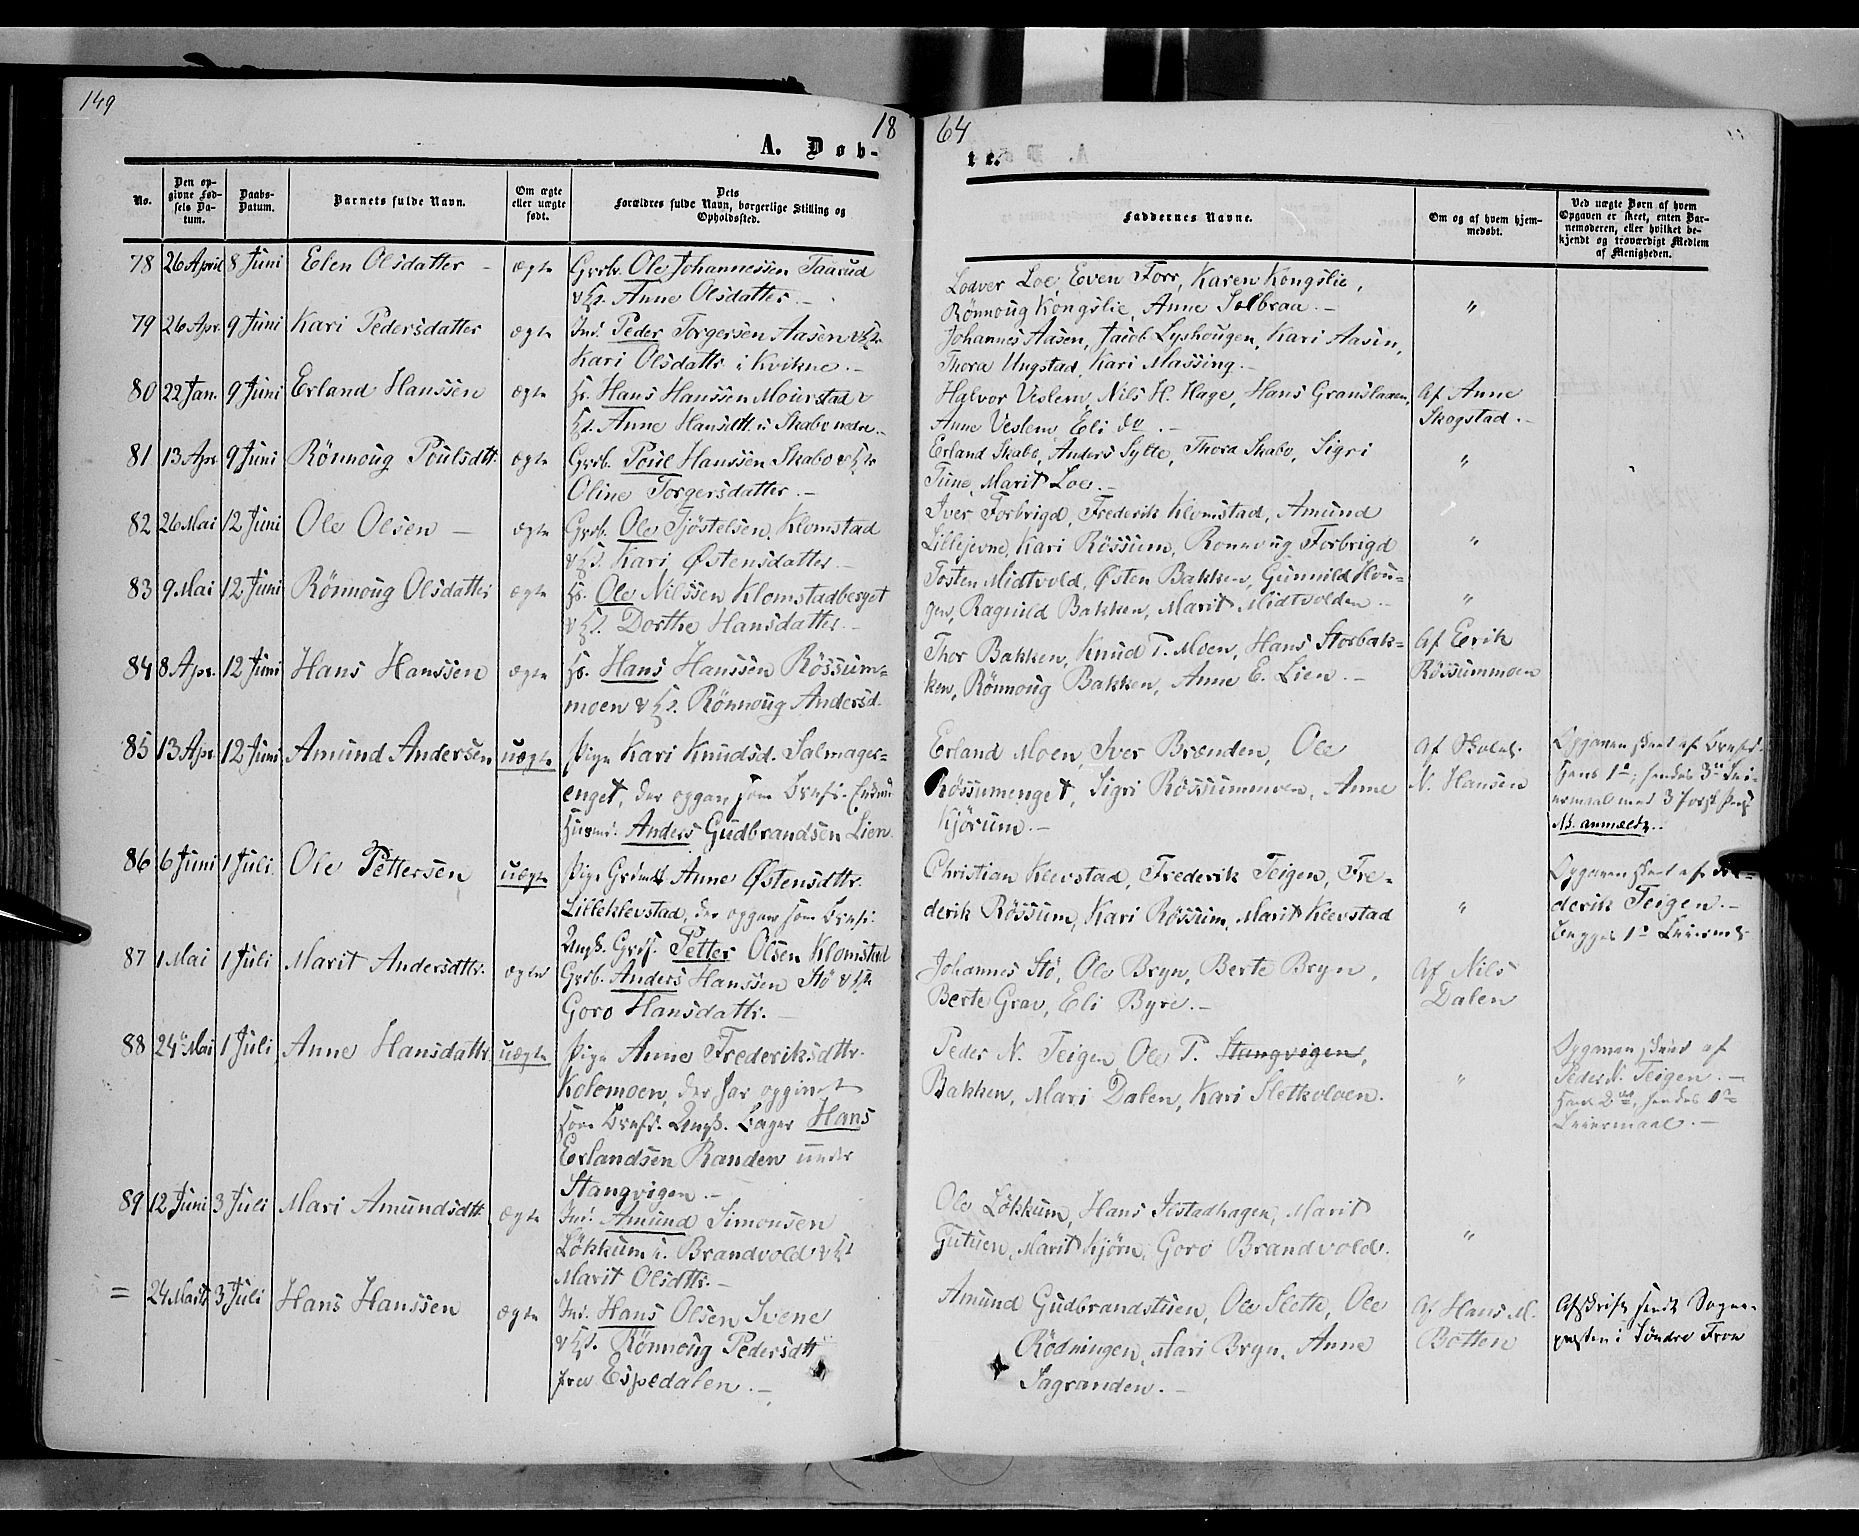 149
18
64
A. Døb-
te.
No.
Den op-
givne Fød-
sels Da-
tum.
Daabs-
Datum.
Barnets fulde Navn.
Om ægte
eller uægte
født.
Dets
Forældres fulde Navn, borgerlige Stilling og
Opholdssted.
Faddernes Navne.
Om og af hvem hjem-
medøbt.
Ved uægte Børn af hvem
Opgaven er skeet, enten Bar-
nemoderen, eller hvilket be-
kjendt og troværdigt Medlem
af Menigheden.
78 26 April 8 Juni Eelen Olsdatter - ægte
Grb. Ole Johannessen Taarud
& H. Anne Olsdatter. -
Lodver Loe, Even Forr, Karen Kongslie,
Rönnoug Kongslie, Anne Solbraa. - "
79 26 Apr. 9 Juni Kari Pedersdatter ægte
Ind. Peder Torgersen Aasen & H.
Kari Olsdattr i Kvikne. -
Johannes Aasen, Jacob Lyshougen, Kari Aasen,
Thora Ungstad, Kari Massing. -
80 22 Jan. 9 Juni Erland Hanssen ægte
H. Hans Hanssen Mourstad &
H. Anne Hansdtt. u. Skabo nedre. -
Halvor Veslem, Nils H. Hage, Hans Granslaaen,
Anne Veslem, Eli do. -
Af Anne
Skogstad. -
81 13 Apr 9 Juni Rönnoug Poulsdtt. ægte
Grb. Poul Hanssen Skabo & H.
Oline Torgersdatter. -
Erland Skabo, Anders Sylte, Thora Skabo, Sigri
Tune, Marit Loe. - "
82 26 Mai 12 Juni Ole Olsen - ægte
Grb. Ole Tjöstelsen Klomstad
& H. Kari Østensdatter. -
Iver Forbrigd, Frederik Klomstad, Amund
Lillejevne, Kari Rössum, Rønnoug Forbrigd "
83 9 Mai 12 Juni Rönnoug Olsdatter ægte
H. Ole Nilssen Klomstadberget
& H. Dorthe Hansdatter. -
Tosten Midtvold, Østen Bakken, Gunnild Hou-
gen, Ragnild Bakken, Marit Midtvolden. - "
84 8 Apr. 12 Juni Hans Hanssen ægte
H. Hans Hanssen Rössum-
moen & H. Rönnoug Andersd.
Thor Bakken, Knud T. Moen, Hans Storbak-
ken, Rönnoug Bakken, Anne E. Lien. -
Af Eerik
Rössummoen
85 13 Apr 12 Juni Amund Andersen uægte
Pige Kari Knudsd. Salmager-
enget, der opgav som Brnf.
Husmd. Anders Gudbrandsen Lien.
Erland Moen, Iver Brænden, Ole
Røssumenget, Sigri Røssummoen, Anne
Kjörum. -
Af Skolel.
N. Hansen
Opgaven skeet af
hans 1e; hendes 3die Lei-
ermaal med 3
Nb. anmeldt.
86 6 Juni 1 Juli Ole Pettersen uægte
Pige Grdmdtt Anne Østensdttr.
Lilleklevstad, der opgav som Brnf.
Ungk. Grds. Petter Olsen Klomstad
Christian Klevstad, Frederik Teigen, Fre-
derik Røssum, Kari Røssum, Marit Klevstad "
Opgaven skeet af Fre-
derik Teigen. -
Begges 1e Leiermaal
87 1 Mai 1 Juli Marit Andersdttr. ægte
Grb. Anders Hanssen Stø & H.
Goro Hansdattr. -
Johannes Stø, Ole Bryn, Berte Bryn,
Berte Grav, Eli Byre. -
Af Nils
Dalen
88 24de Mai 1 Juli Anne Hansdattr uægte
Pige Anne Frederiksdttr.
Kolomoen, der har opgivet
som Brnf. Ungk. Bager Hans
Erlandsen Randen under
Stangvigen. -
Peder N. Teigen, Ole P. Stangvigen,
Bakken, Mari Dalen, Kari Sletholoen. "
Opgaven skeet af
Peder N. Teigen. -
Hans 2det, hendes 1e
Leiermaal. -
89 12 Juni 3 Juli Mari Amundsdtt. ægte
Ind. Amund Simonsen
Løkkum u. Brandvold & H.
Marit Olsdttr. -
Ole Løkkum, Hans Istadhagen, Marit
Gutuen, Marit Kjörn, Goro Brandvold. "
= 24 Marts 3 Juli Hans Hanssen ægte
Ind. Hans Olsen Svene
& H. Rönnoug Pedersdtt
fra Espedalen. -
Amund Gudbrandstuen, Ole Slette, Ole
Rödningen, Mari Bryn, Anne
Sagranden. -
Af Hans M.
Botten
Afskrift sendt Sogne-
præsten i Söndre Fron